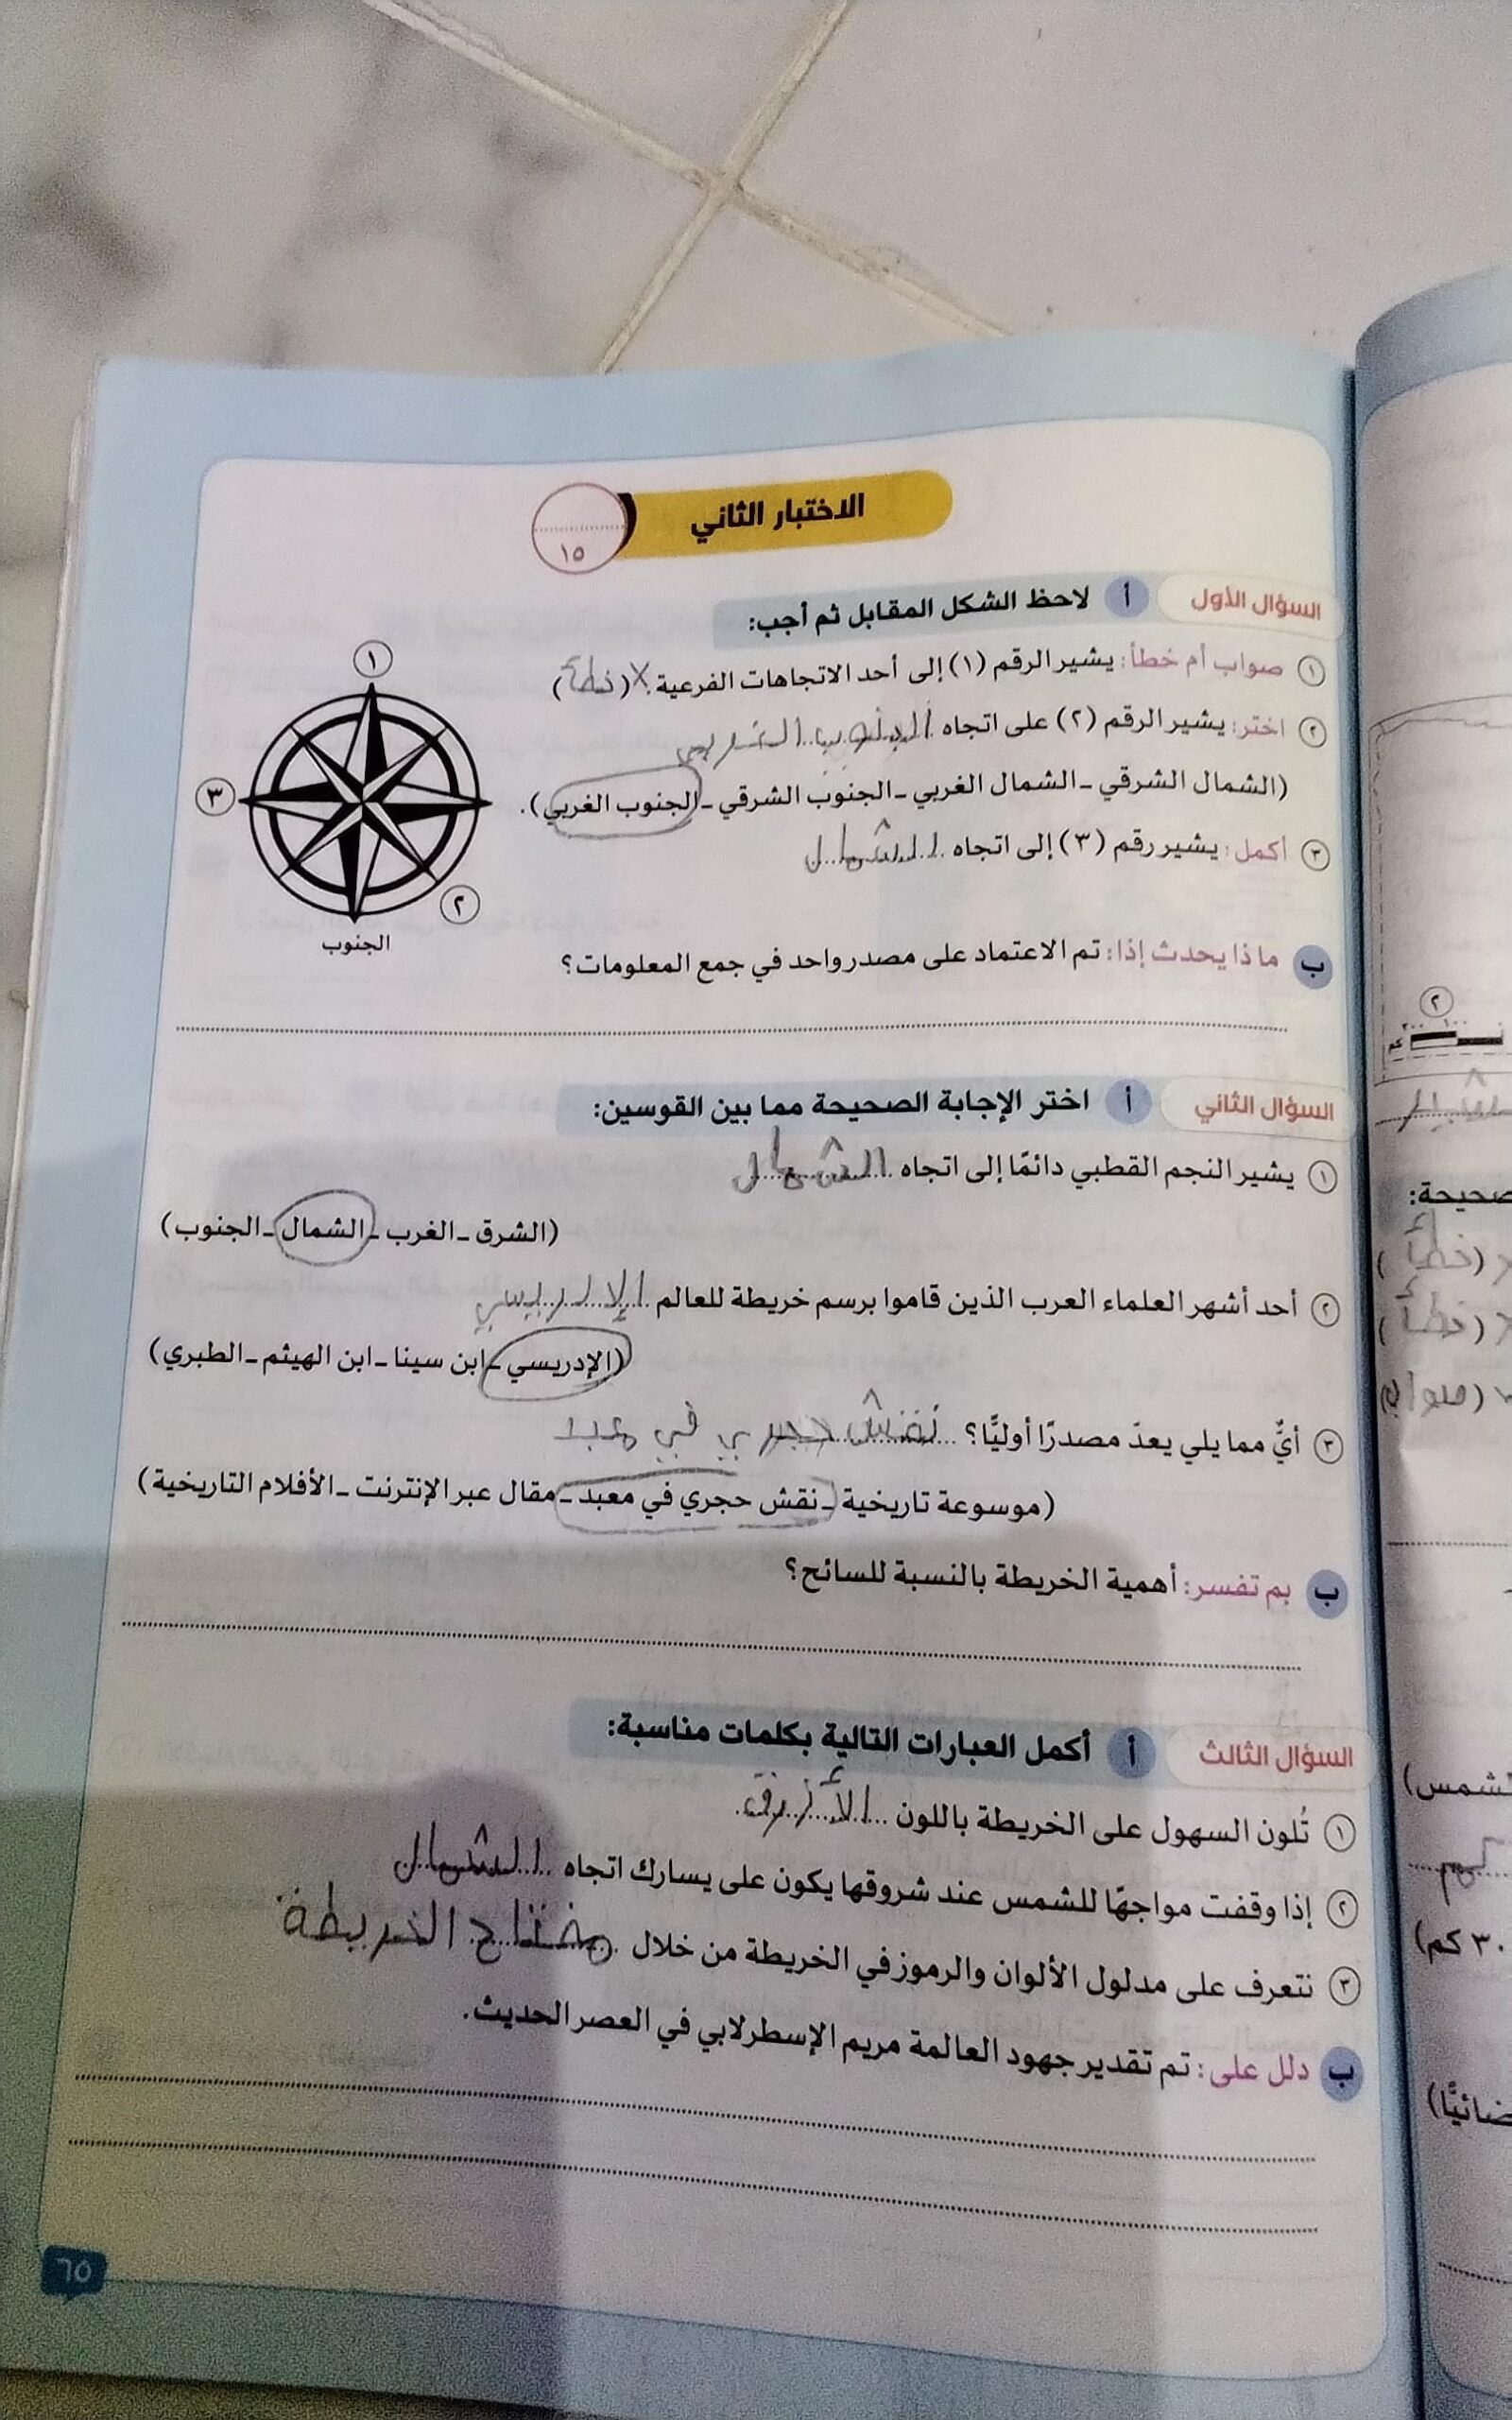 الاختبار الثاني
١٥
السؤال الأول أ لاحظ الشكل المقابل ثم أجب:
١ صواب أم خطأ: يشير الرقم (١) إلى أحد الاتجاهات الفرعية. X (خطأ)
٢ اختر: يشير الرقم (٢) على اتجاه الجنوب الغربي
(الشمال الشرقي - الشمال الغربي - الجنوب الشرقي - الجنوب الغربي).
٣ أكمل: يشير رقم (٣) إلى اتجاه الشمال
١
٣
٢
الجنوب
ب ماذا يحدث إذا: تم الاعتماد على مصدر واحد في جمع المعلومات؟
السؤال الثاني أ اختر الإجابة الصحيحة مما بين القوسين:
١ يشير النجم القطبي دائمًا إلى اتجاه الشمال
(الشرق - الغرب - الشمال - الجنوب)
٢ أحد أشهر العلماء العرب الذين قاموا برسم خريطة للعالم الإدريسي
(الإدريسي - ابن سينا - ابن الهيثم - الطبري)
٣ أيٌّ مما يلي يعدّ مصدرًا أوليًّا؟ نقش حجري في معبد
(موسوعة تاريخية - نقش حجري في معبد - مقال عبر الإنترنت - الأفلام التاريخية)
ب بم تفسر: أهمية الخريطة بالنسبة للسائح؟
السؤال الثالث أ أكمل العبارات التالية بكلمات مناسبة:
١ تُلون السهول على الخريطة باللون الأزرق.
٢ إذا وقفت مواجهًا للشمس عند شروقها يكون على يسارك اتجاه الشمال
٣ نتعرف على مدلول الألوان والرموز في الخريطة من خلال مفتاح الخريطة
ب دلل على: تم تقدير جهود العالمة مريم الإسطرلابي في العصر الحديث.
٦٥
٢
١٠٠ ٢٠٠
كم
صحيحة:
(خطأ)
(خطأ)
(صواب)
٣٠ كم)